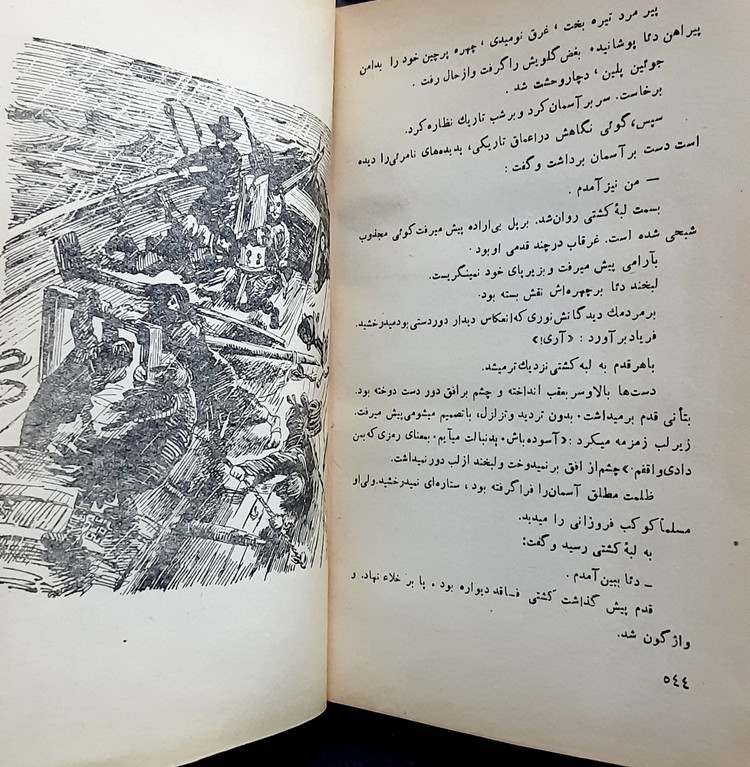 پیر مرد تیره بخت ، غرق نومیدی ، چهره پرچین خود را بدامن
پیراهن دئا پوشانیده بغض گلویش را گرفت و از حال رفت .
جوئین پلین ، دچار وحشت شد .
برخاست. سر بر آسمان کرد و بر شب تاریك نظاره کرد.
سپس، گوئی نگاهش در اعماق تاریکی، پدیده‌های نامرئی را دیده
است دست بر آسمان برداشت و گفت :
— من نیز آمدم .
بسمت لبهٔ کشتی روان شد. بر پل بی‌اراده پیش میرفت گوئی مجذوب
شبحی شده است. غرقاب در چند قدمی او بود .
بآرامی پیش میرفت و بزیر پای خود نمینگریست.
لبخند دئا بر چهره‌اش نقش بسته بود.
بر مردمك دیدگانش نوری که انعکاس دیدار دوردستی بود میدرخشید.
فریاد بر آورد : «آری!»
باهر قدم به لبه کشتی نزدیك تر میشد.
دست‌ها بالا و سر بعقب انداخته و چشم بر افق دور دست دوخته بود.
بتأنی قدم برمیداشت. بدون تردید و تزلزل، با تصمیم میشومی پیش میرفت.
زیر لب زمزمه میکرد : «آسوده باش. بدنبالت میآیم. بمعنای رمزی که بمن
دادی واقفم.» چشم از افق بر نمیدوخت و لبخند از لب دور نمیداشت.
ظلمت مطلق آسمان را فرا گرفته بود ، ستاره‌ای نمیدرخشید. ولی او
مسلماً کوکب فروزانی را میدید.
به لبهٔ کشتی رسید و گفت:
ـ دئا ببین آمدم .
قدم پیش گذاشت کشتی فـاقد دیواره بود . پا بر خلاء نهاد. و
واژگون شد.
٥٤٤